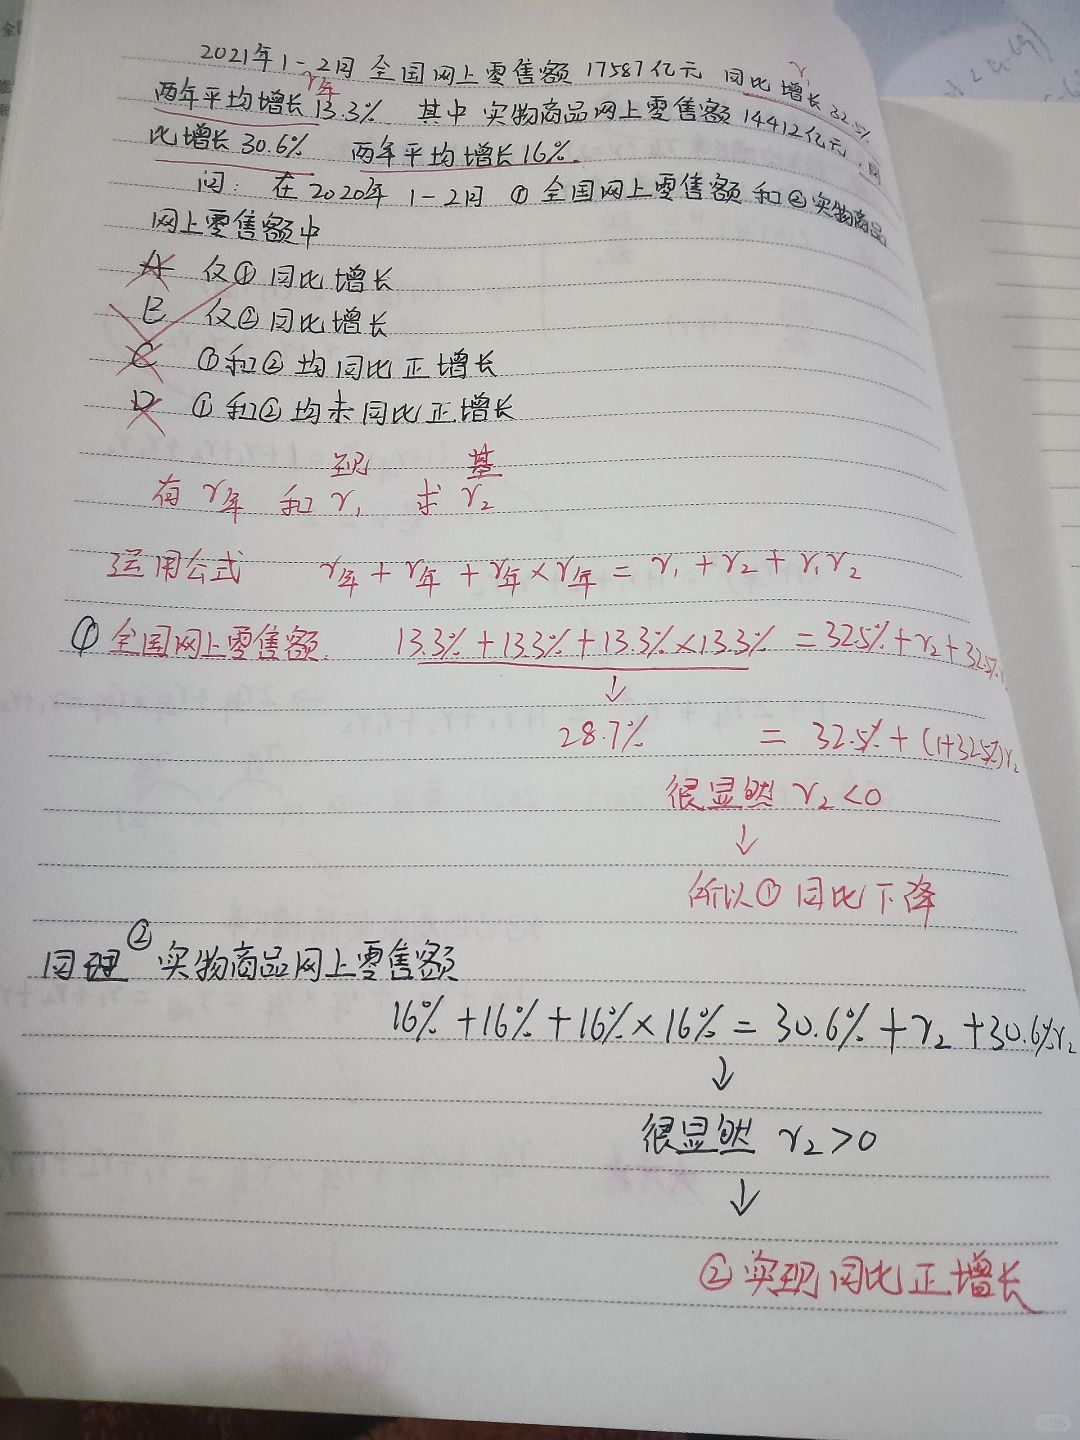 2021年1-2月 全国网上零售额 17587亿元 同比增长 32.5%
r年
r1
两年平均增长 13.3% 其中 实物商品网上零售额 14412亿元, 同
比增长 30.6% 两年平均增长 16%.
问: 在2020年 1-2月 ① 全国网上零售额 和 ② 实物商品
网上零售额中
A 仅①同比增长
B 仅②同比增长
C ①和②均同比正增长
D ①和②均未同比正增长
现 基
有 r年 和 r1 求 r2
运用公式 r年 + r年 + r年×r年 = r1 + r2 + r1r2
① 全国网上零售额. 13.3% + 13.3% + 13.3%×13.3% = 32.5% + r2 + 32.5%
↓
28.7% = 32.5% + (1+32.5%)r2
很显然 r2<0
↓
所以①同比下降
同理 ② 实物商品网上零售额
16% + 16% + 16%×16% = 30.6% + r2 + 30.6%r2
↓
很显然 r2>0
↓
②实现同比正增长